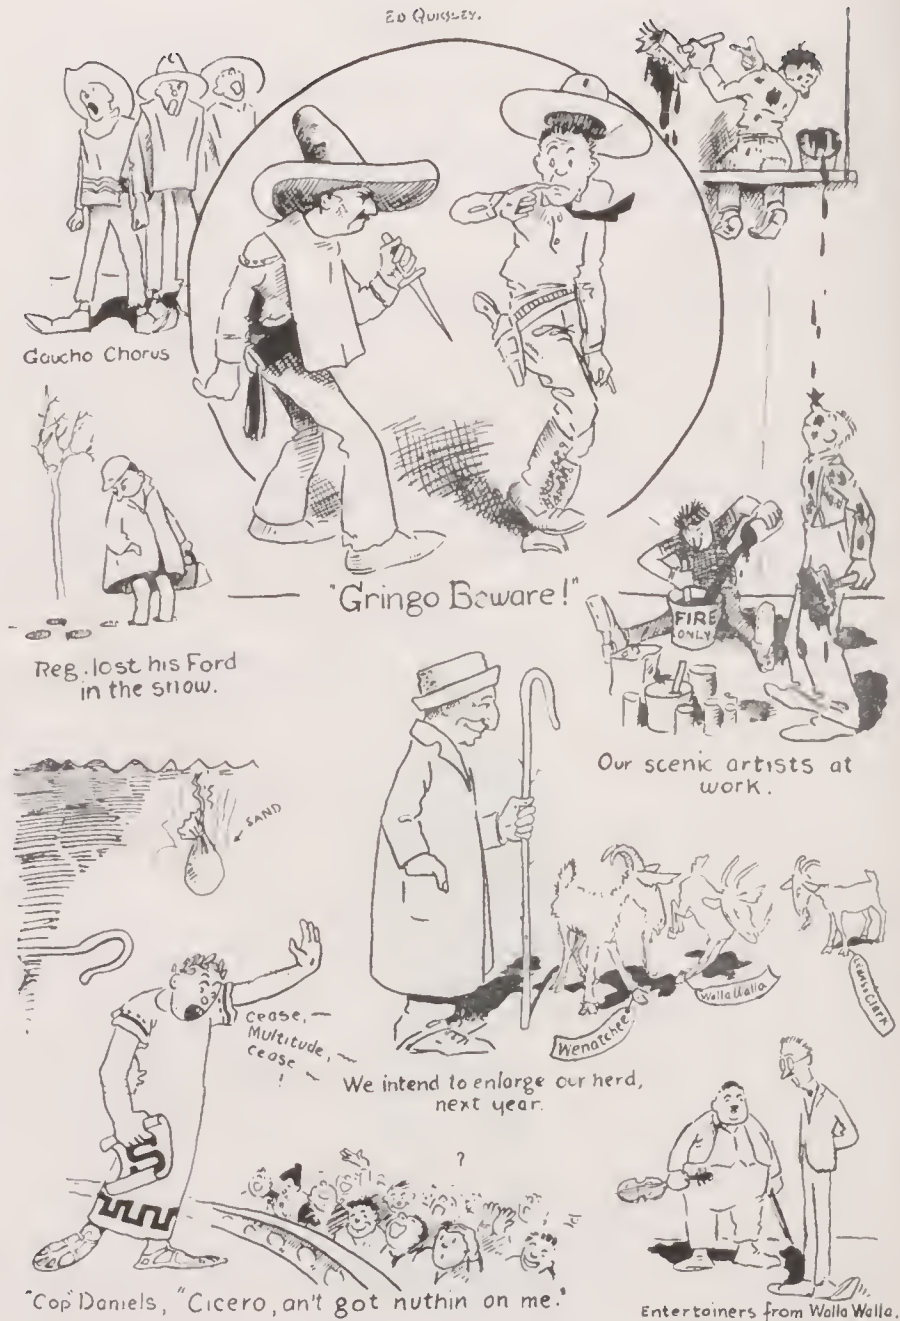 ED QUIGLEY.
Gaucho Chorus
"Gringo Beware!"
Reg. lost his Ford
in the snow.
FIRE
ONLY
Our scenic artists at
work.
SAND
Cease,—
Multitude,—
cease —
!
Wenatchee
Walla Walla
Clark
We intend to enlarge our herd,
next year.
?
"Cop" Daniels, "Cicero, an't got nuthin on me."
Entertainers from Walla Walla.